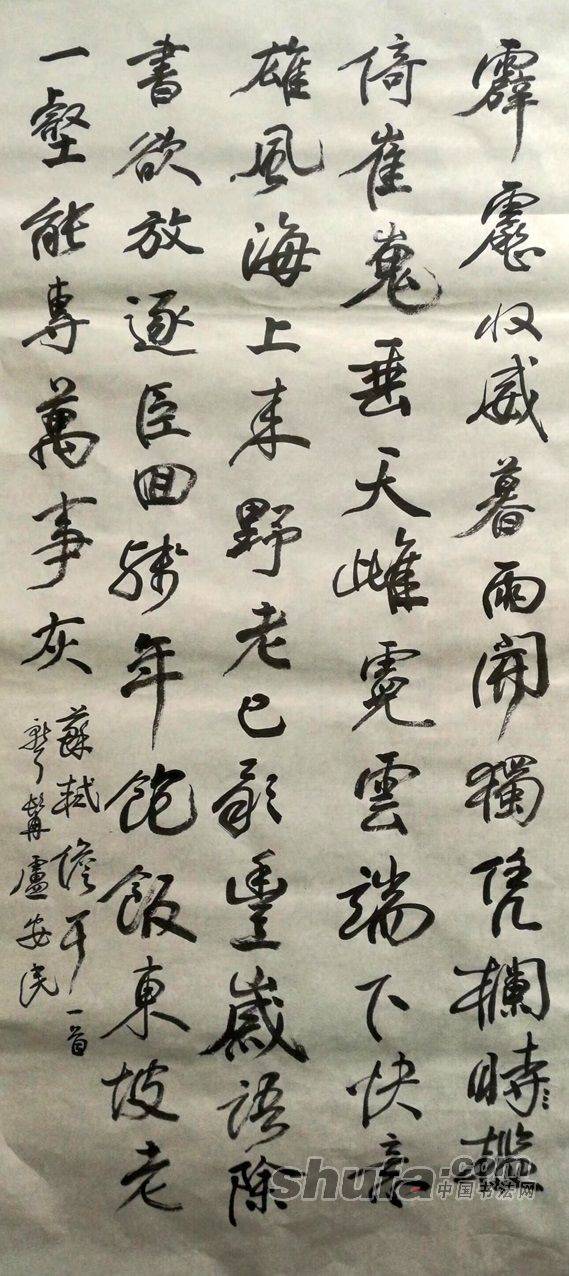 霹靂收威暮雨開獨凭欄時檻
倚崔嵬垂天雌霓雲端下快意
雄風海上来野老已歌豐歲語除
書欲放逐臣回殘年飽飯東坡老
一壑能專萬事灰
蘇軾儋耳一首
髯盧安民
shufa.com
中国书法网